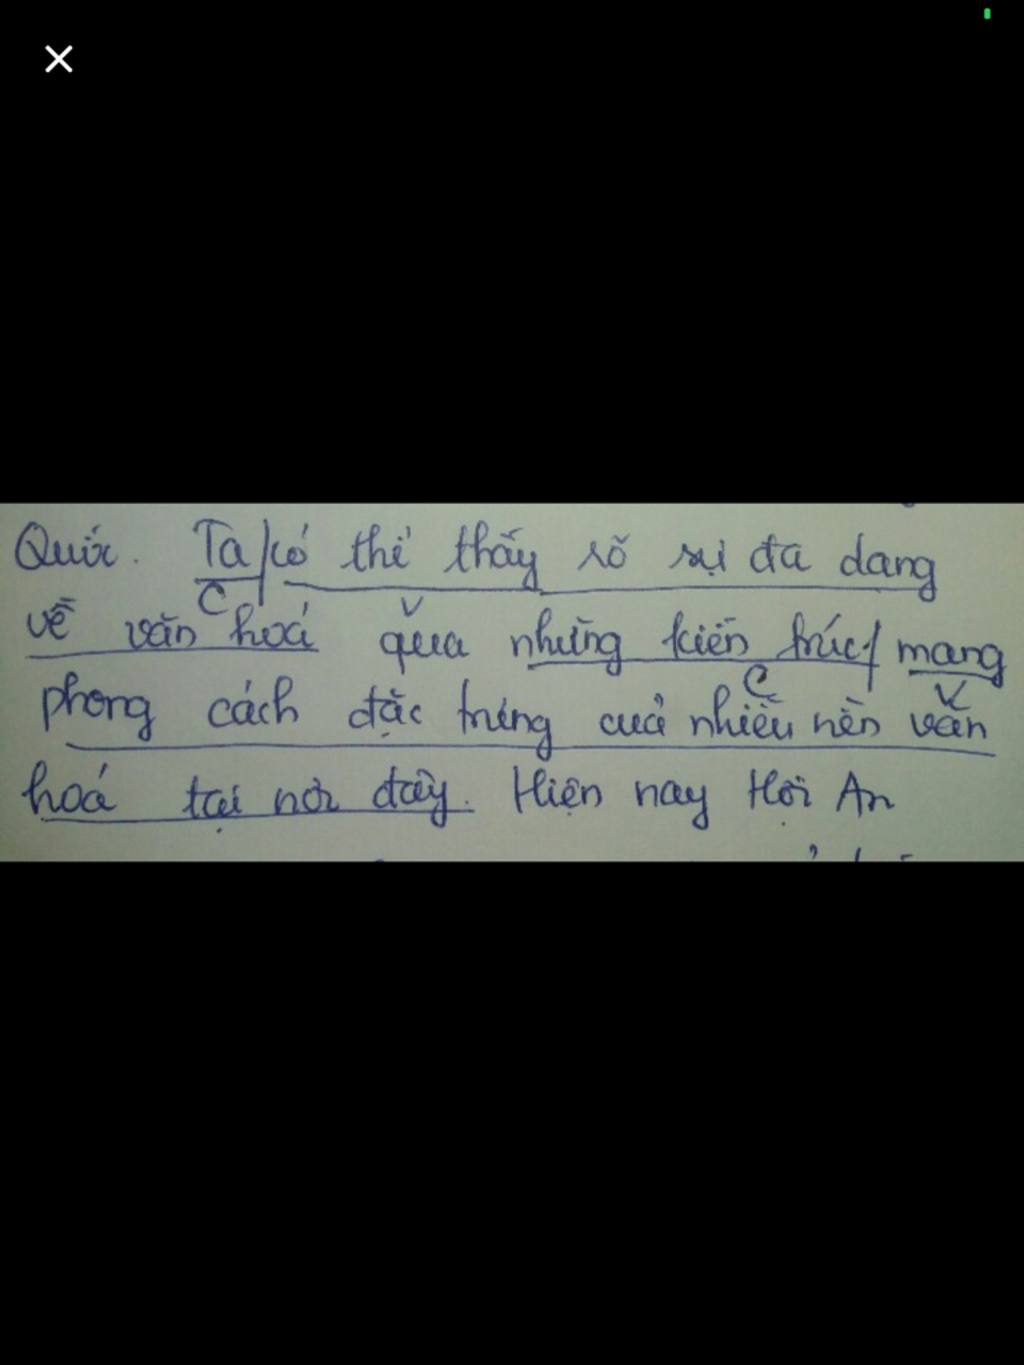 Quốc. Ta/có thể thấy rõ sự đa dạng
C
V
về văn hoá qua những kiến trúc/ mang
C
V
phong cách đặc trưng cuả nhiều nền văn
hoá tại nơi đây. Hiện nay Hội An